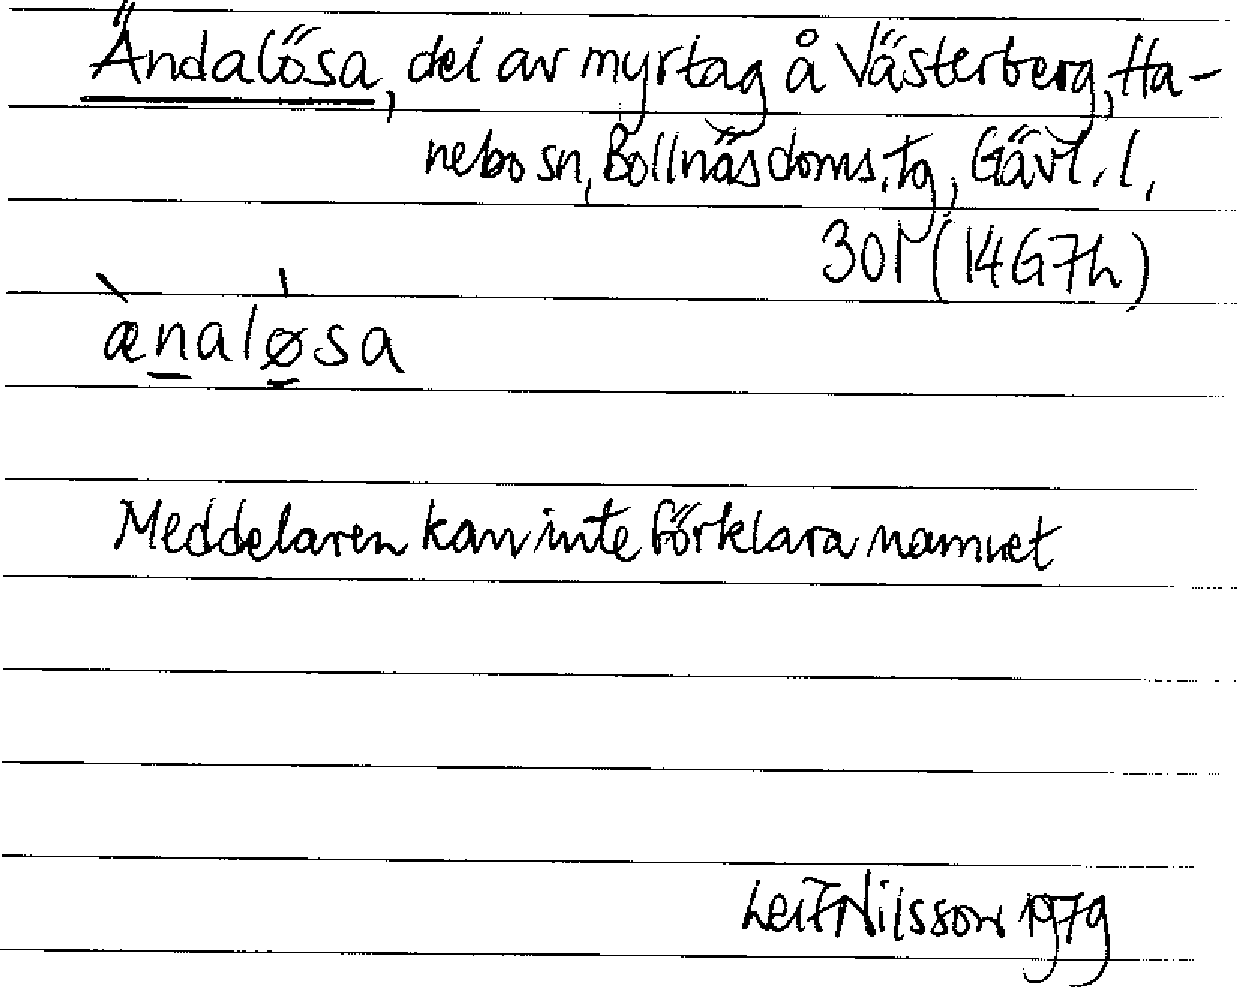 Ändalösa, del av myrtag å Västerberg, Ha-
nebo sn, Bollnäs doms. tg, Gävl. l.
301 (14G7h)
æ̀naløsa
Meddelaren kan inte förklara namnet
Leif Nilsson 1979